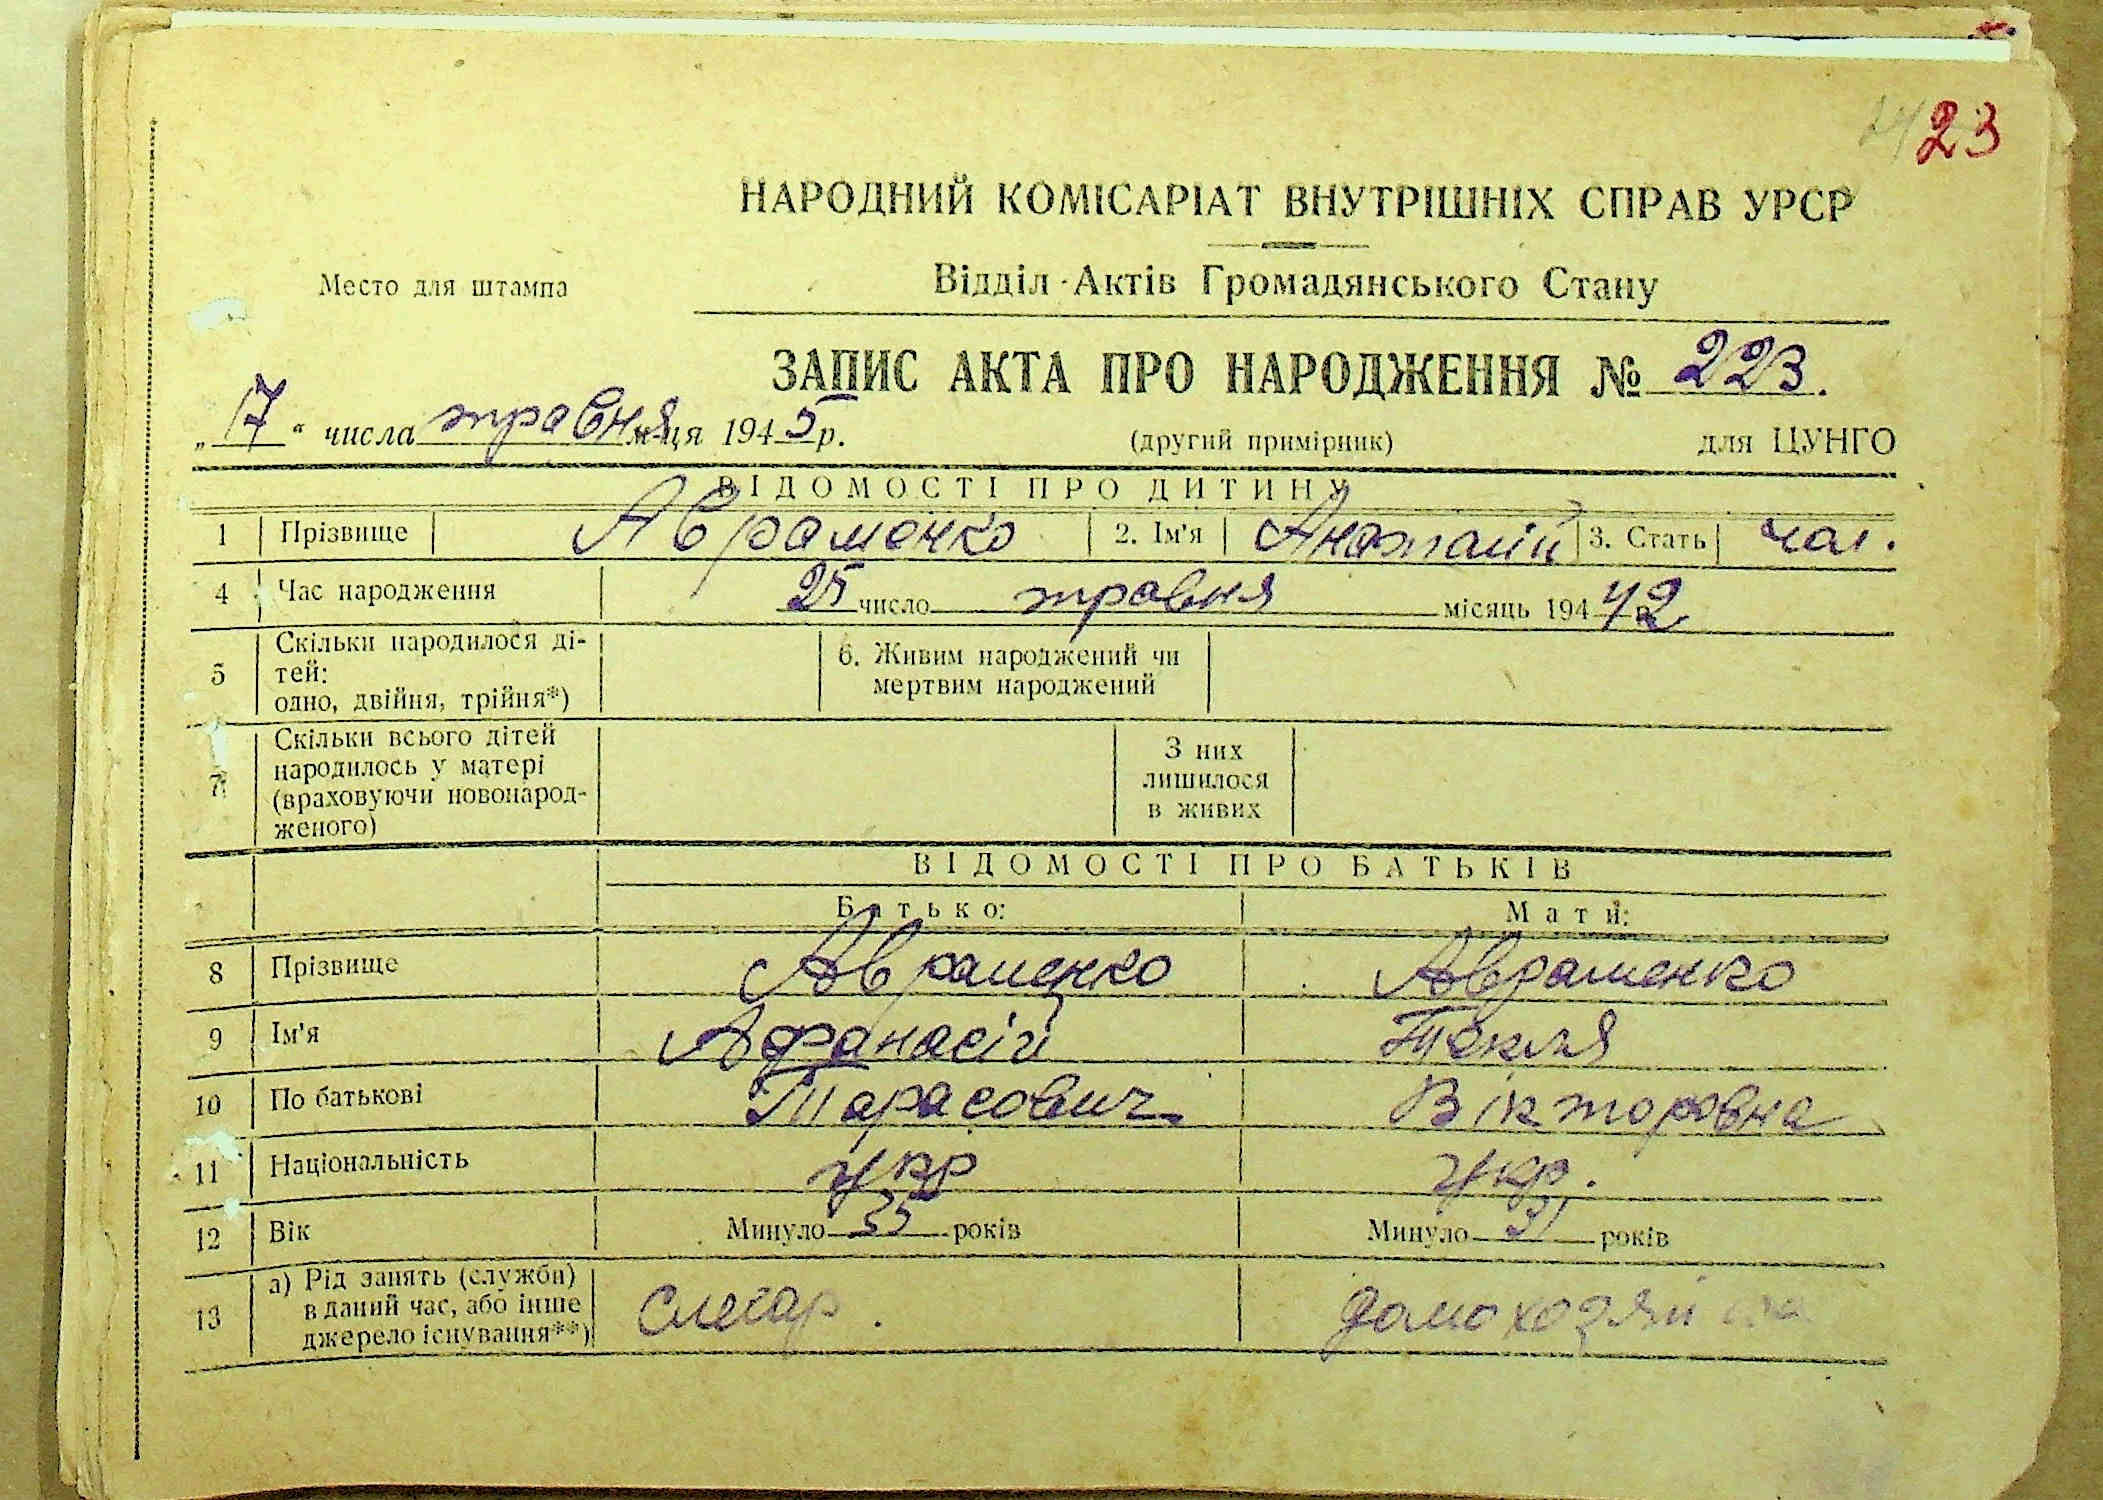 23
НАРОДНИЙ КОМІСАРІАТ ВНУТРІШНІХ СПРАВ УРСР
Место для штампа
Відділ Актів Громадянського Стану
ЗАПИС АКТА ПРО НАРОДЖЕННЯ № 223.
„17“ числа травня м-ця 1945 р.
(другий примірник) для ЦУНГО
ВІДОМОСТІ ПРО ДИТИНУ
1 Прізвище Авраменко 2. Ім'я Анатолій 3. Стать чол.
4 Час народження 25 число травня місяць 194 42 р.
5 Скільки народилося ді-
тей:
одно, двійня, трійня*)
6. Живим народжений чи
мертвим народжений
7 Скільки всього дітей
народилось у матері
(враховуючи новонарод-
женого)
З них
лишилося
в живих
ВІДОМОСТІ ПРО БАТЬКІВ
Батько: Мати:
8 Прізвище Авраменко Авраменко
9 Ім'я Афанасій Текля
10 По батькові Тарасович Вікторовна
11 Національність укр укр.
12 Вік Минуло 35 років Минуло 31 років
13 а) Рід занять (служби)
в даний час, або інше
джерело існування**)
Слесар. домохозяйка